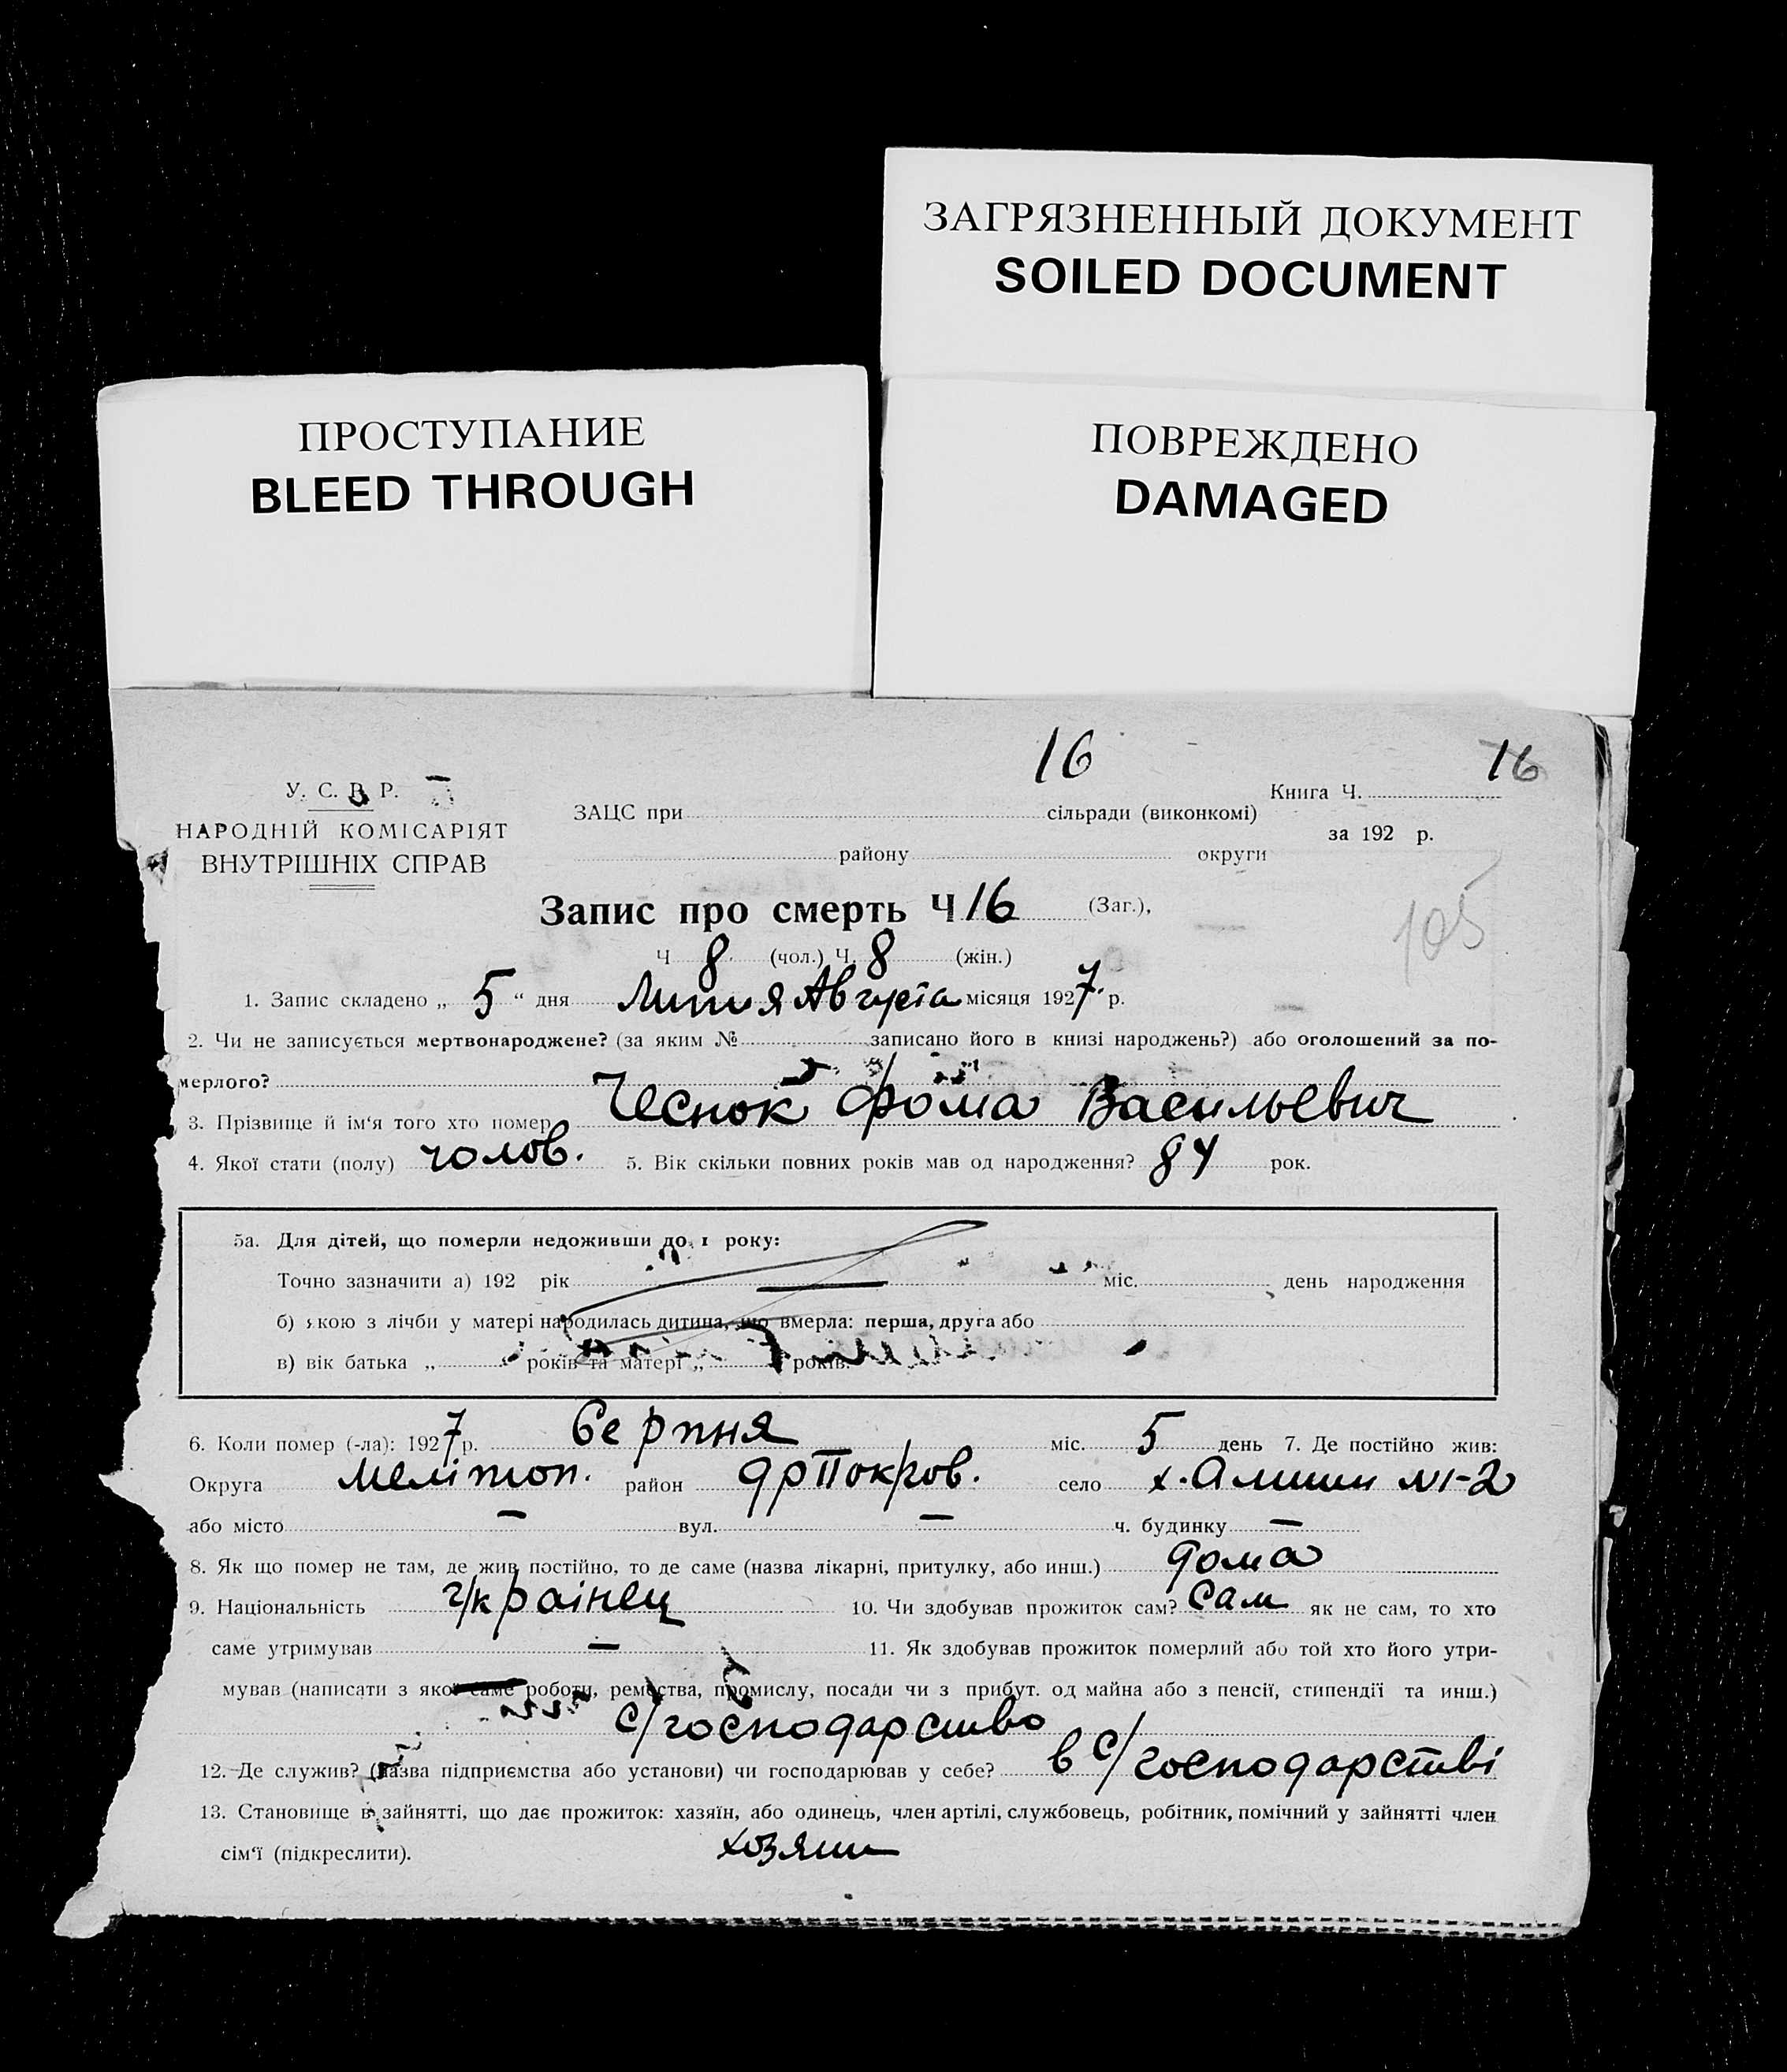 ЗАГРЯЗНЕННЫЙ ДОКУМЕНТ
SOILED DOCUMENT
ПРОСТУПАНИЕ
BLEED THROUGH
ПОВРЕЖДЕНО
DAMAGED
16
16
У. С. Р. Р.
НАРОДНІЙ КОМІСАРІЯТ
ВНУТРІШНІХ СПРАВ
Книга Ч.
за 192 р.
ЗАЦС при сільради (виконкомі)
району округи
Запис про смерть Ч 16 (Заг.),
105
Ч 8 (чол.) Ч. 8 (жін.)
1. Запис складено „ 5 “ дня Августа місяця 1927 р.
2. Чи не записується мертвонароджене? (за яким № записано його в книзі народжень?) або оголошений за по-
мерлого?
3. Прізвище й ім‘я того хто помер Чеснок Фома Васильевич
4. Якої стати (полу) чолов. 5. Вік скільки повних років мав од народження? 84 рок.
5а. Для дітей, що померли недоживши до 1 року:
Точно зазначити а) 192 рік міс. день народження
б) якою з лічби у матері народилась дитина, що вмерла: перша, друга або
в) вік батька „ років та матері „ років.
6. Коли помер (-ла): 1927 р. Серпня міс. 5 день 7. Де постійно жив:
Округа Меліտоп. район дрПокров. село х. №1-2
або місто — вул. — ч. будинку —
8. Як що помер не там, де жив постійно, то де саме (назва лікарні, притулку, або инш.) дома
9. Національність українец 10. Чи здобував прожиток сам? Сам як не сам, то хто
саме утримував — 11. Як здобував прожиток померлий або той хто його утри-
мував (написати з якої саме роботи, ремества, промислу, посади чи з прибут. од майна або з пенсії, стипендії та инш.)
с/господарство
12. Де служив? (назва підприємства або установи) чи господарював у себе? в с/господарстві
13. Становище в зайнятті, що дає прожиток: хазяїн, або одинець, член артілі, службовець, робітник, помічний у зайнятті член
сім‘ї (підкреслити). хозяин